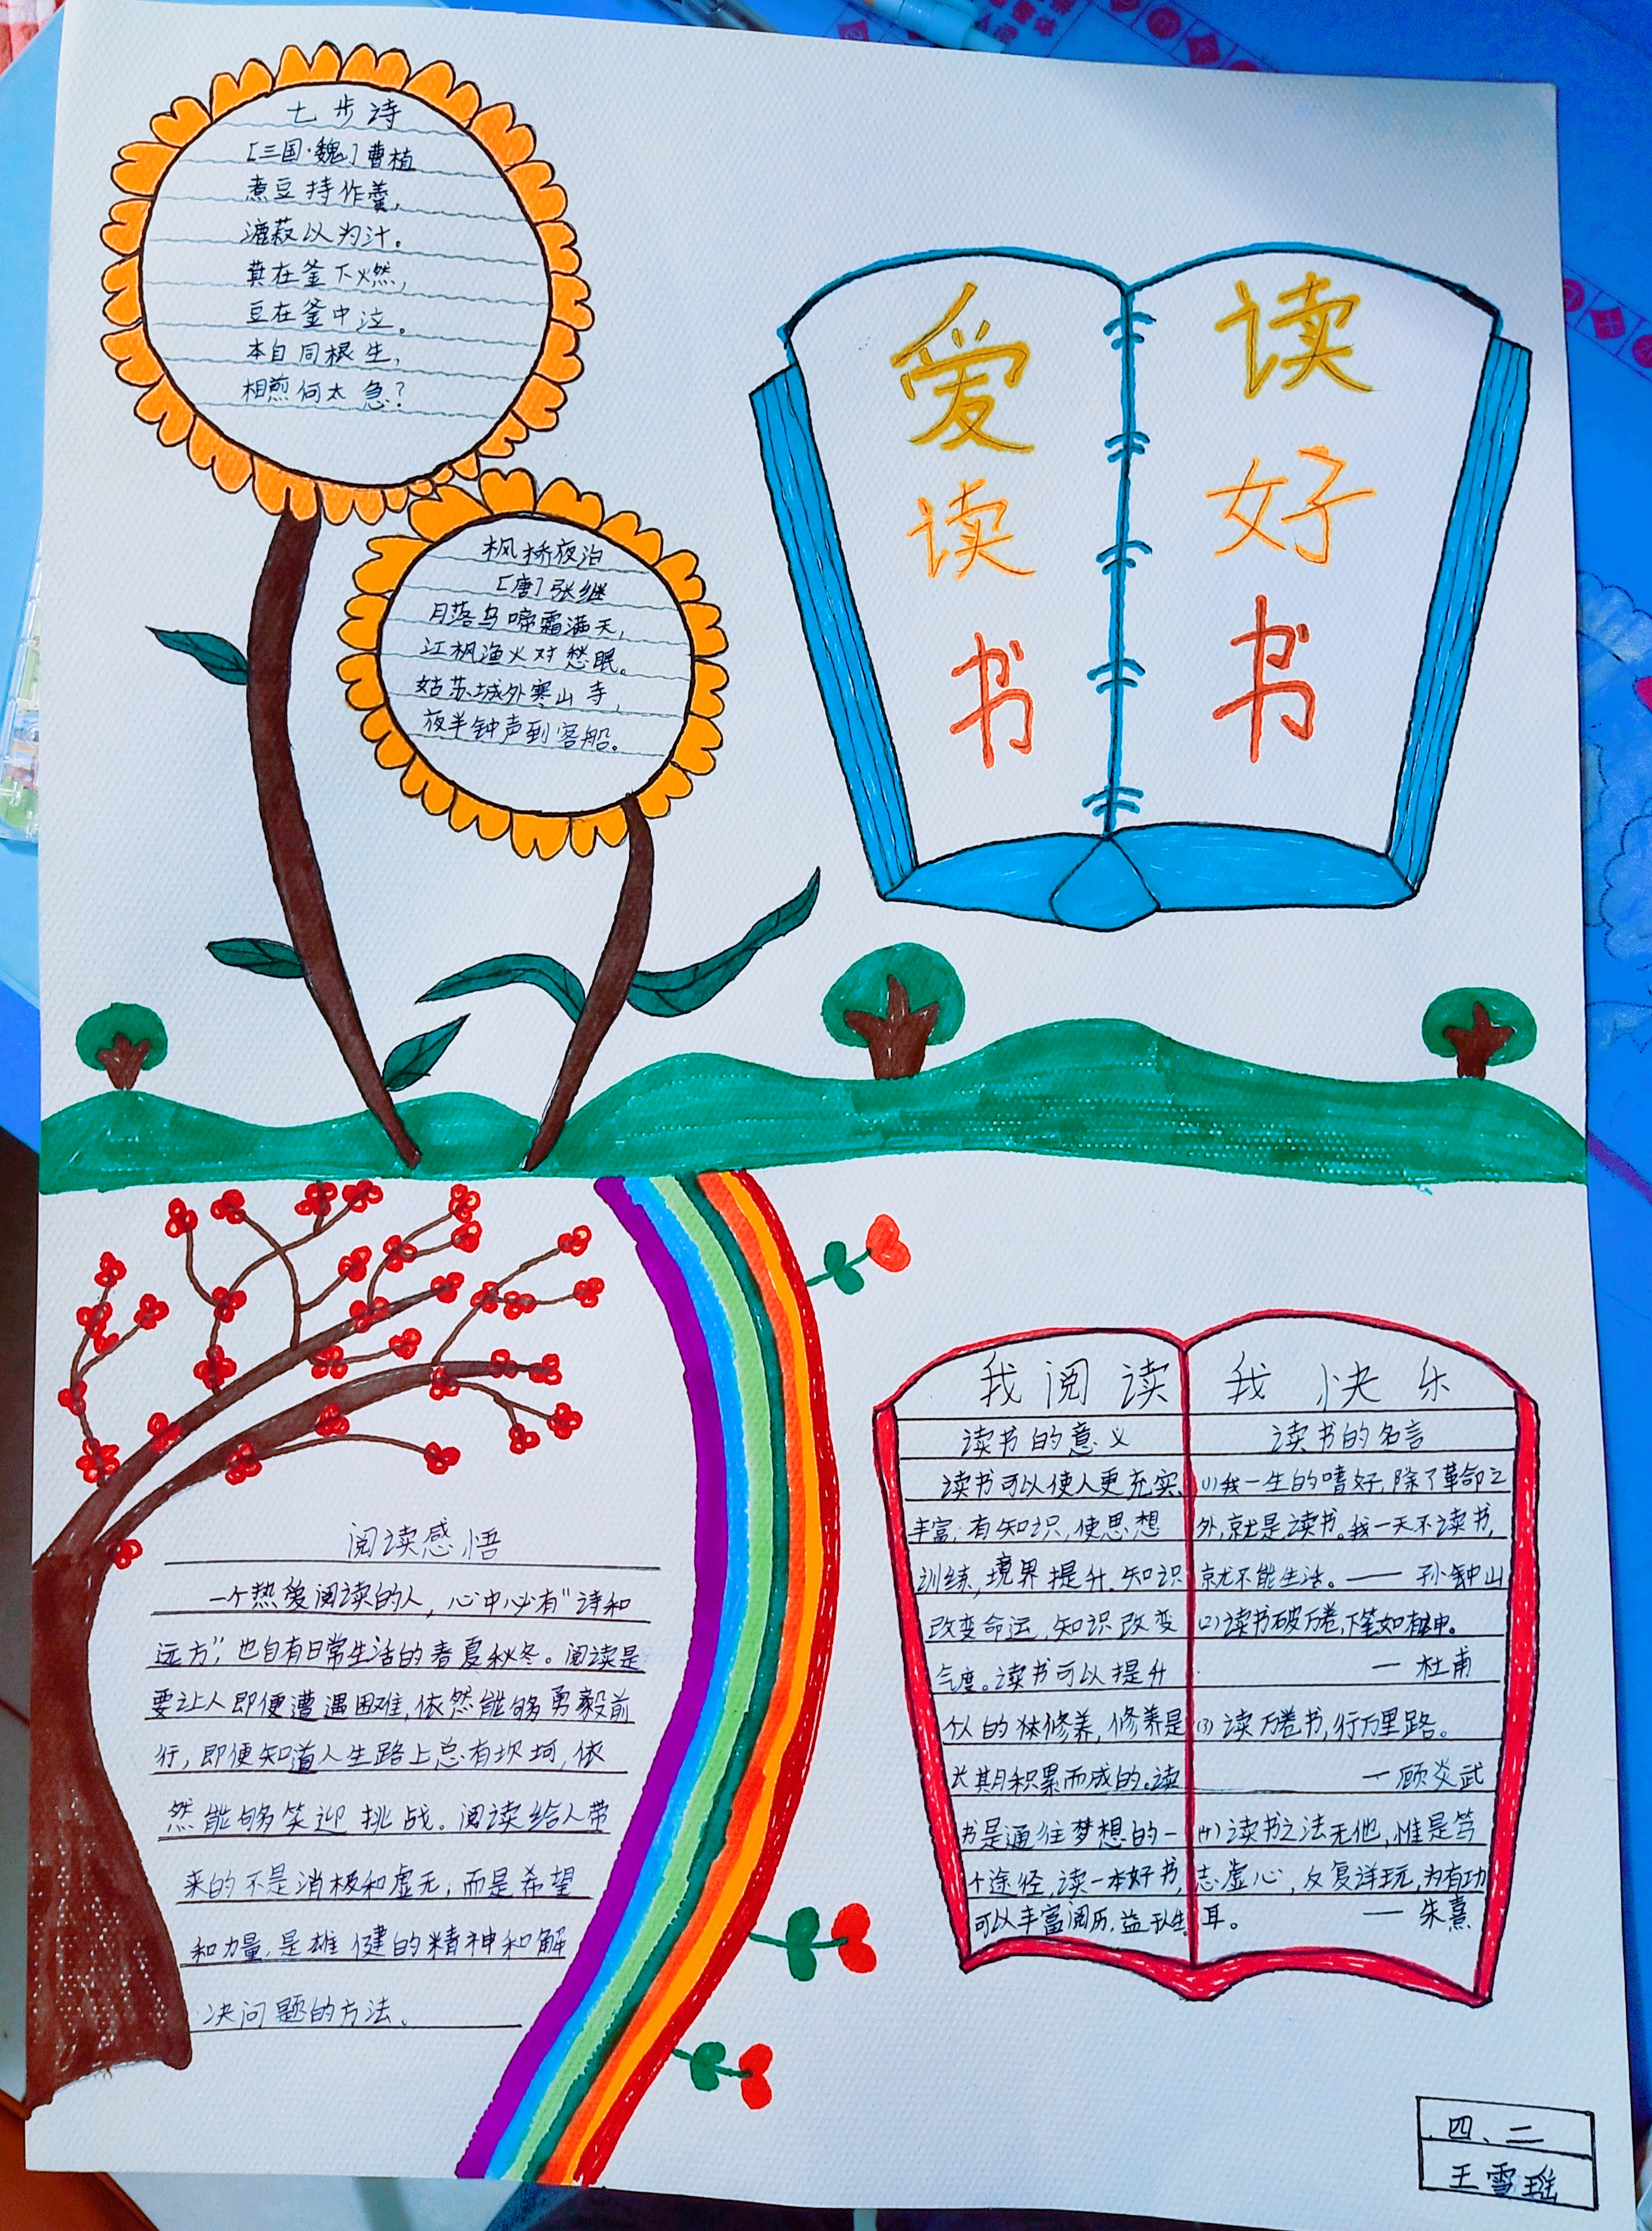 七步诗
[三国·魏]曹植
煮豆持作羹,
漉菽以为汁。
萁在釜下燃,
豆在釜中泣。
本自同根生,
相煎何太急?
枫桥夜泊
[唐]张继
月落乌啼霜满天,
江枫渔火对愁眠。
姑苏城外寒山寺,
夜半钟声到客船。
爱读书
读好书
阅读感悟
一个热爱阅读的人,心中必有"诗和
远方",也自有日常生活的春夏秋冬。阅读是
要让人即便遭遇困难,依然能够勇毅前
行,即便知道人生路上总有坎坷,依
然能够笑迎挑战。阅读给人带
来的不是消极和虚无,而是希望
和力量,是雄健的精神和解
决问题的方法。
我阅读 我快乐
读书的意义
读书可以使人更充实、
丰富,有知识,使思想
训练,境界提升.知识
改变命运,知识改变
气度。读书可以提升
个人的体修养,修养是
长期积累而成的。读
书是通往梦想的一
个途径,读一本好书,
可以丰富阅历,益于人生。
读书的名言
(1)我一生的嗜好,除了革命之
外,就是读书。我一天不读书,
就不能生活。——孙钟山
(2)读书破万卷,下笔如有神。
—杜甫
(3)读万卷书,行万里路。
—顾炎武
(4)读书之法无他,惟是笃
志虚心,反复详玩,为有功
耳。 — 朱熹
四、二
王雪瑶